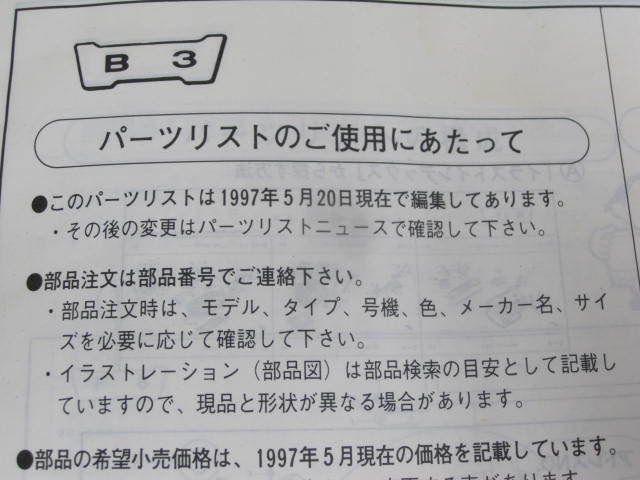 B 3
パーツリストのご使用にあたって
●このパーツリストは1997年5月20日現在で編集してあります。
・その後の変更はパーツリストニュースで確認して下さい。
●部品注文は部品番号でご連絡下さい。
・部品注文時は、モデル、タイプ、号機、色、メーカー名、サイ
ズを必要に応じて確認して下さい。
・イラストレーション（部品図）は部品検索の目安として記載し
ていますので、現品と形状が異なる場合があります。
●部品の希望小売価格は、1997年5月現在の価格を記載しています。